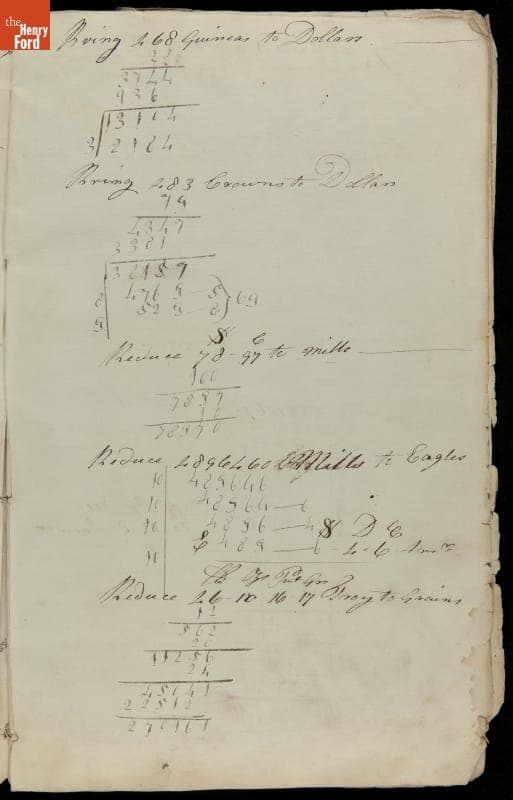 the
Henry
Ford
Bring 468 Guineas to Dollars
28
3744
936
13104
3 2184
Bring 483 Crowns to Dollars
79
4347
3381
38157
476 5 5
52 3 8 } 69
$ C
Reduce 78-97 to mills
100
7897
10
78970
Reduce 4896460 Mills to Eagles
10 489646
10 48964 — 6
10 4896 — 4 $ D C
10 E 489 — 6 - 4 - 6
Reduce 26-10 16 17 Troy to Grains
12
562
20
11256
24
45041
22512
270161